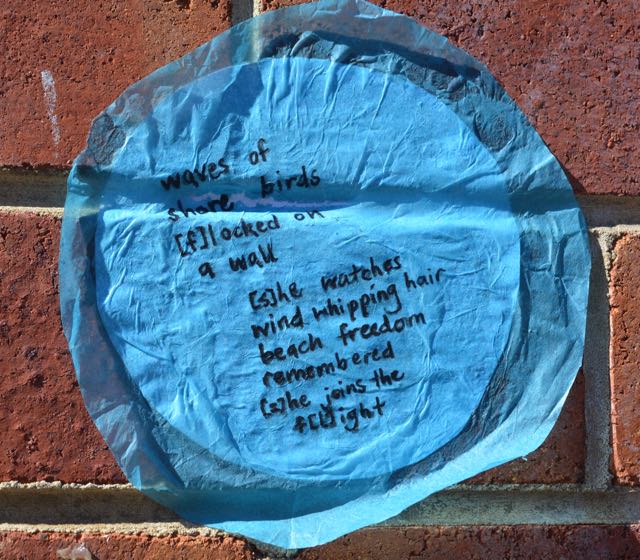 waves of
shore birds
[f]locked on
a wall
[s]he watches
wind whipping hair
beach freedom
remembered
[s]he joins the
f[l]ight